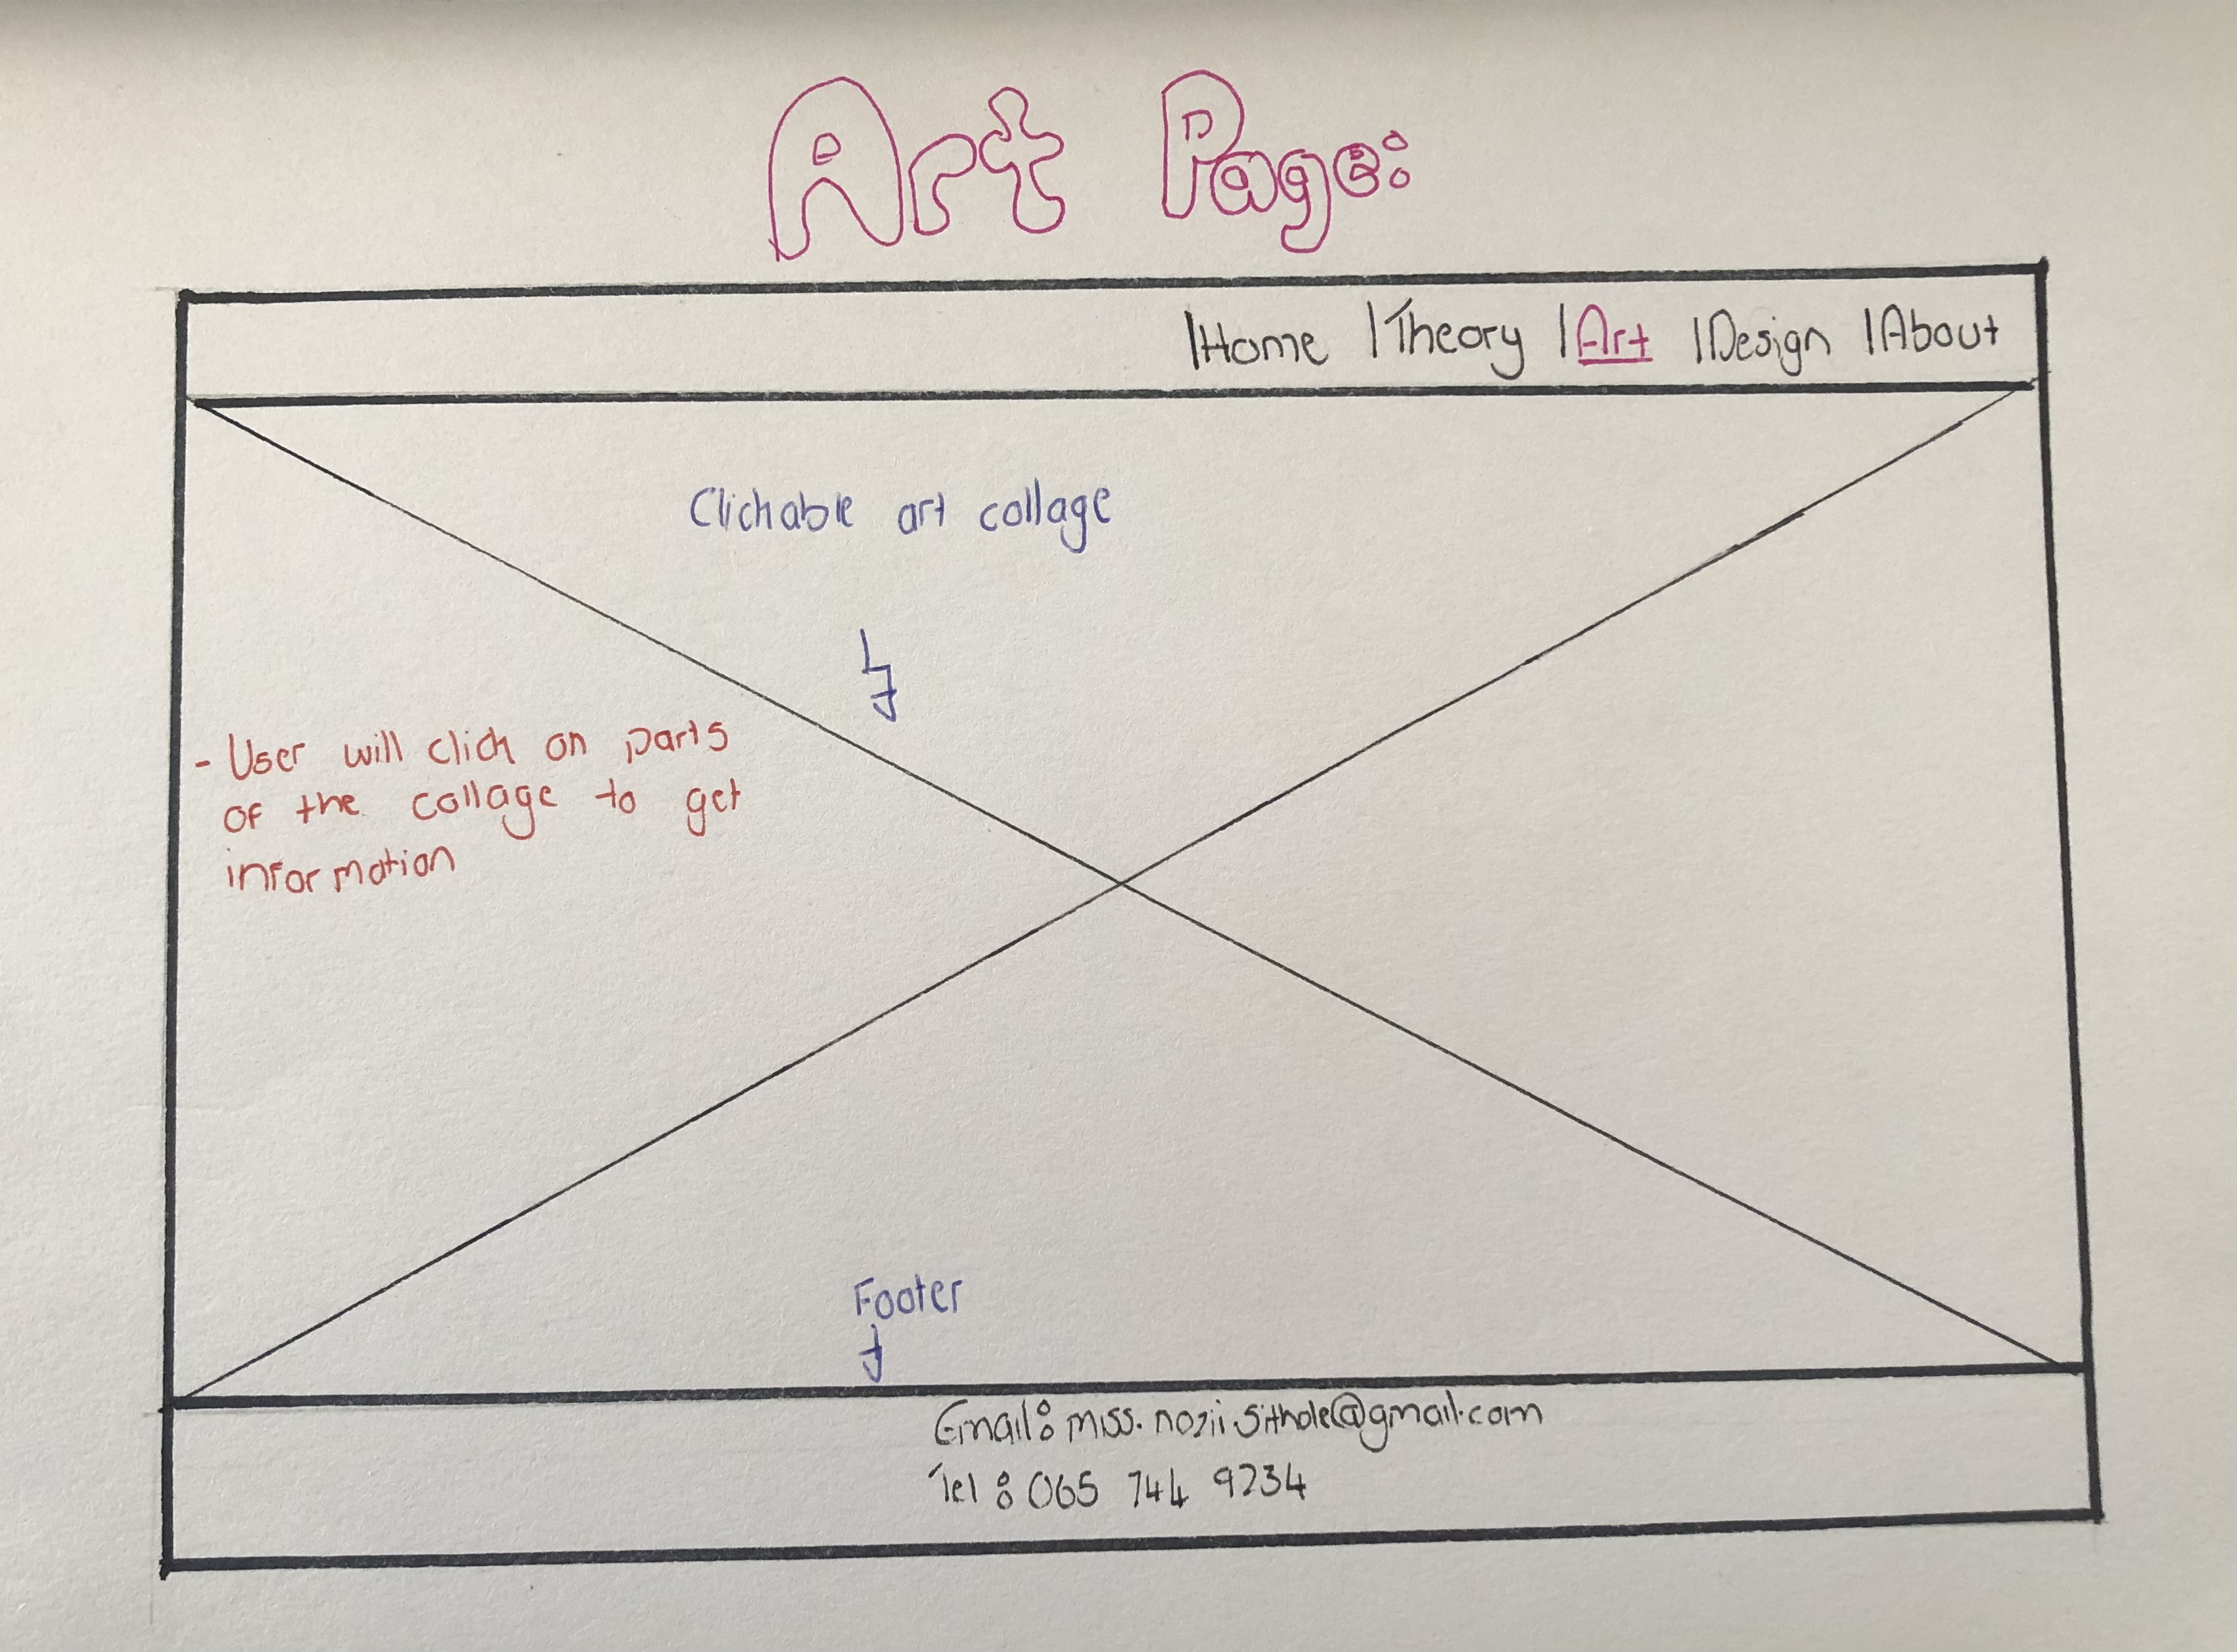 Art Page:
|Home |Theory |Art |Design |About
Clickable art collage
- User will click on parts
of the collage to get
information
Footer
Email: miss.nozii.sithole@gmail.com
Tel: 065 744 9234